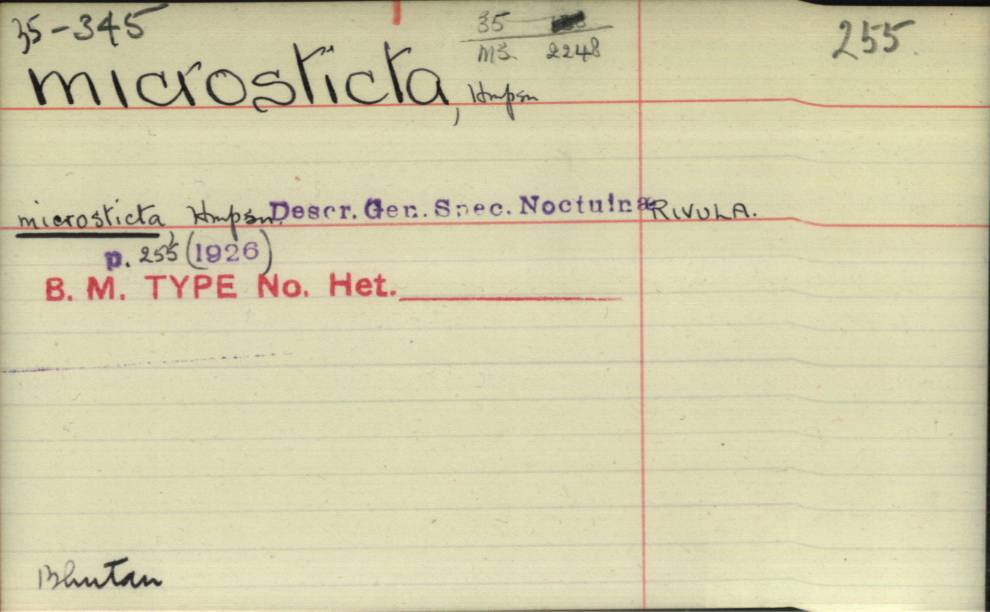 35-345
35
MS. 2248
255.
microsticta, Hmpsn
microsticta, Hmpsn. Descr. Gen. Spec. Noctuinæ RIVULA.
p. 255 (1926)
B. M. TYPE No. Het.
Bhutan